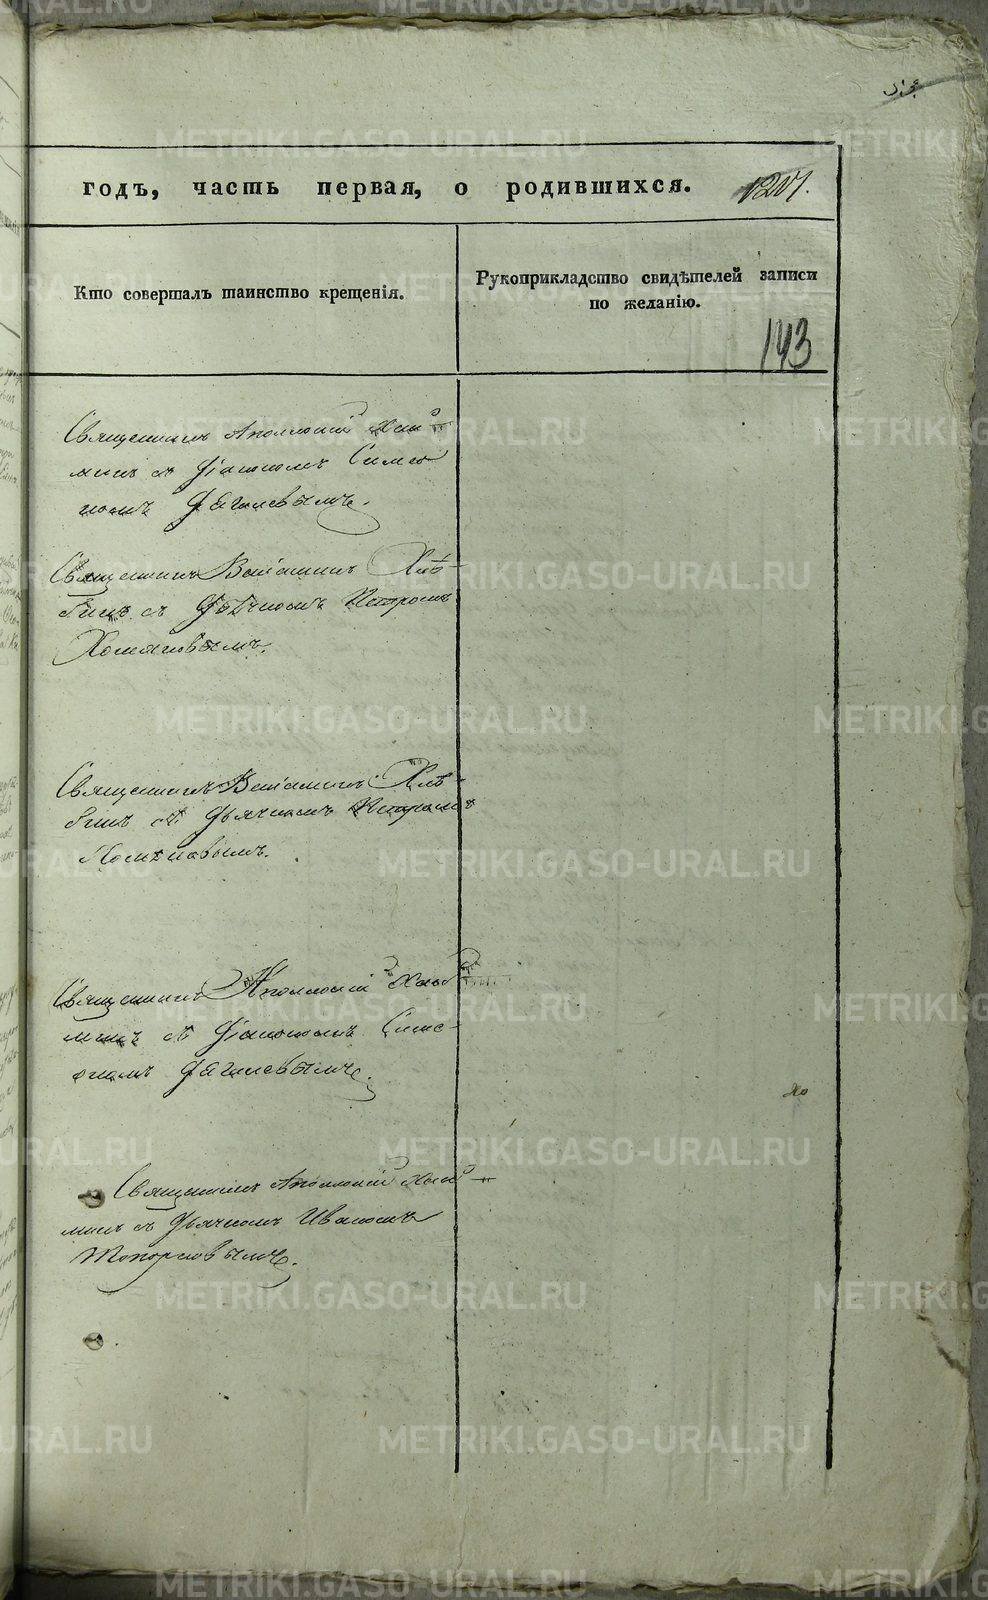 годъ, часть первая, о родившихся.
Кто совершалъ таинство крещенія.
Рукоприкладство свидѣтелей записи
по желанію.
143
Священникъ Аполлоній
съ Діакономъ Симео
номъ Дягилевымъ.
Священникъ Веніаминъ Хлѣ-
бинъ съ Дьячкомъ Петромъ
Хомяковымъ.
Священникъ Веніаминъ Хлѣ-
бинъ съ Дьячкомъ Петромъ
Хомяковымъ.
Священникъ Аполлоній
съ Діакономъ Симе-
ономъ Дягилевымъ.
Священникъ Аполлоній
съ Дьячкомъ Иваномъ
Топорковымъ.
METRIKI.GASO-URAL.RU